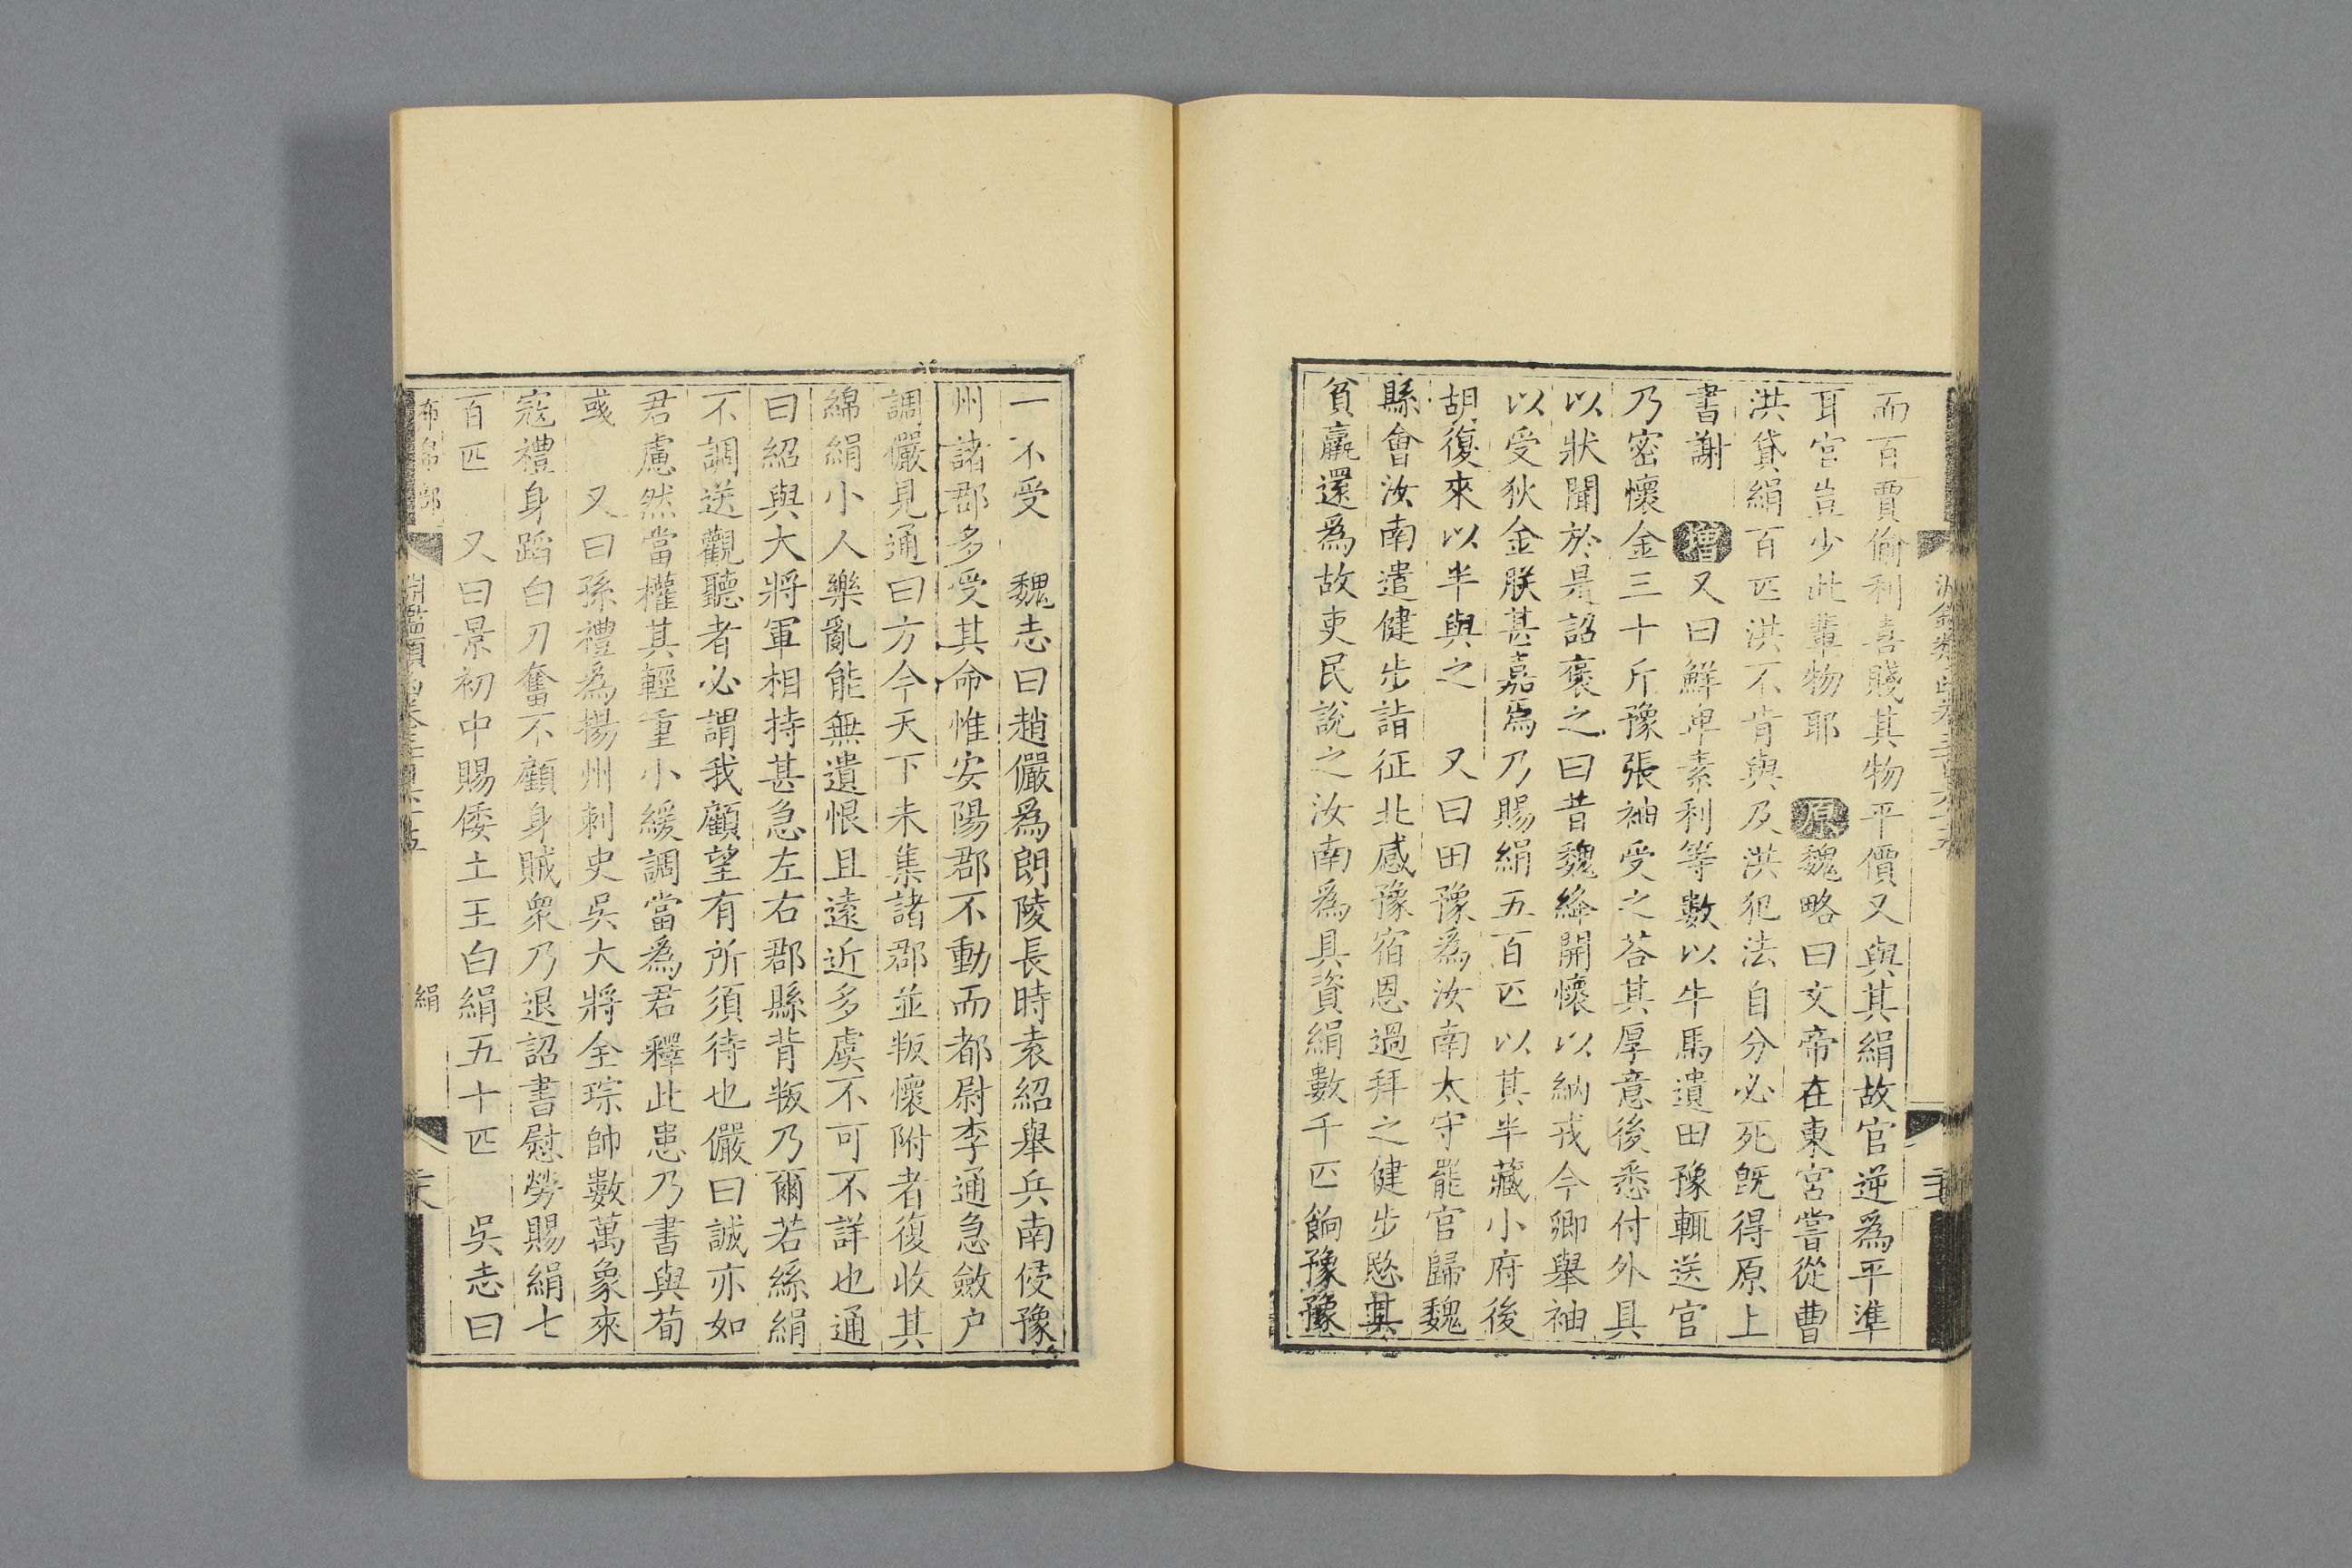 而百賈偷利喜賤其物平價又與其絹故官逆爲平準
耳官豈少此輩物耶 原魏略曰文帝在東宮嘗從曹
洪貸絹百匹洪不肯與及洪犯法自分必死旣得原上
書謝 增又曰鮮卑素利等數以牛馬遺田豫輒送官
乃密懷金三十斤豫張袖受之荅其厚意後悉付外具
以狀聞於是詔襃之曰昔魏絳開懷以納戎今卿舉袖
以受狄金朕甚嘉焉乃賜絹五百匹以其半藏小府後
胡復來以半與之 又曰田豫爲汝南太守罷官歸魏
縣會汝南遣健步詣征北感豫宿恩過拜之健步愍其
貧羸還爲故吏民說之汝南爲具資絹數千匹餉豫豫
一不受 魏志曰趙儼爲朗陵長時袁紹舉兵南侵豫
州諸郡多受其命惟安陽郡不動而都尉李通急斂户
調儼見通曰方今天下未集諸郡並叛懷附者復收其
綿絹小人樂亂能無遺恨且遠近多虞不可不詳也通
曰紹與大將軍相持甚急左右郡縣背叛乃爾若緜絹
不調送觀聽者必謂我顧望有所須待也儼曰誠亦如
君慮然當權其輕重小緩調當爲君釋此患乃書與荀
彧 又曰孫禮爲揚州刺史吳大將全琮帥數萬衆來
寇禮身蹈白刃奮不顧身賊衆乃退詔書慰勞賜絹七
百匹 又曰景初中賜倭土王白絹五十匹 吳志曰
布帛部
絹